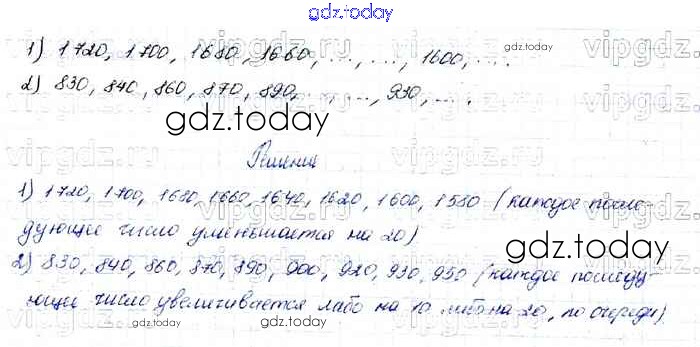 gdz.today
1) 1720, 1700, 1680, 1660, ..., ..., 1600, ... .
2) 830, 840, 860, 870, 890, ..., ..., 930, ... .
gdz.today
1) 1720, 1700, 1680, 1660, 1640, 1620, 1600, 1580 (каждое после-
дующее число уменьшается на 20)
gdz.today
2) 830, 840, 860, 870, 890, 900, 920, 930, 950 (каждое последу-
ющее число увеличивается либо на 10 либо на 20, по очереди).
gdz.today